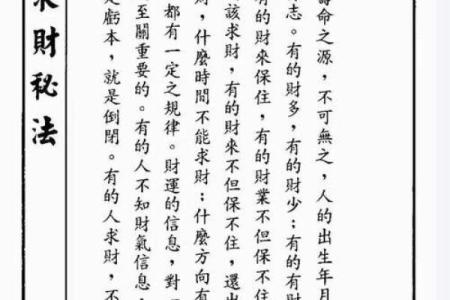 壽命之源，不可無之，人的出生年月
志。有的財多，有的財少：有的有財
有的財來保住，有的財業不但保不
該求財，有的財來不但保不住，還出
財，什麼時間不能求財：什麼方向有
都有一定之規律。財運的信息，對
至關重要的。有的人不知財氣信息，
是虧本，就是倒閉。有的人求財，不
求財秘法